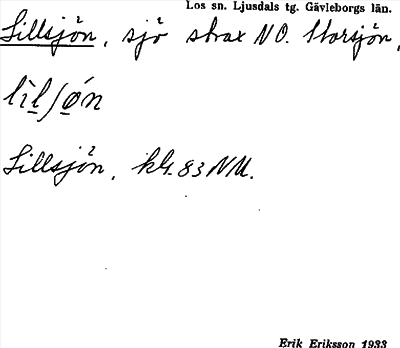 Los sn. Ljusdals tg. Gävleborgs län.
Lillsjön, sjö strax NO. Storsjön,
lìlʃǿn
Lillsjön, kbl. 83 NU.
Erik Eriksson 1933